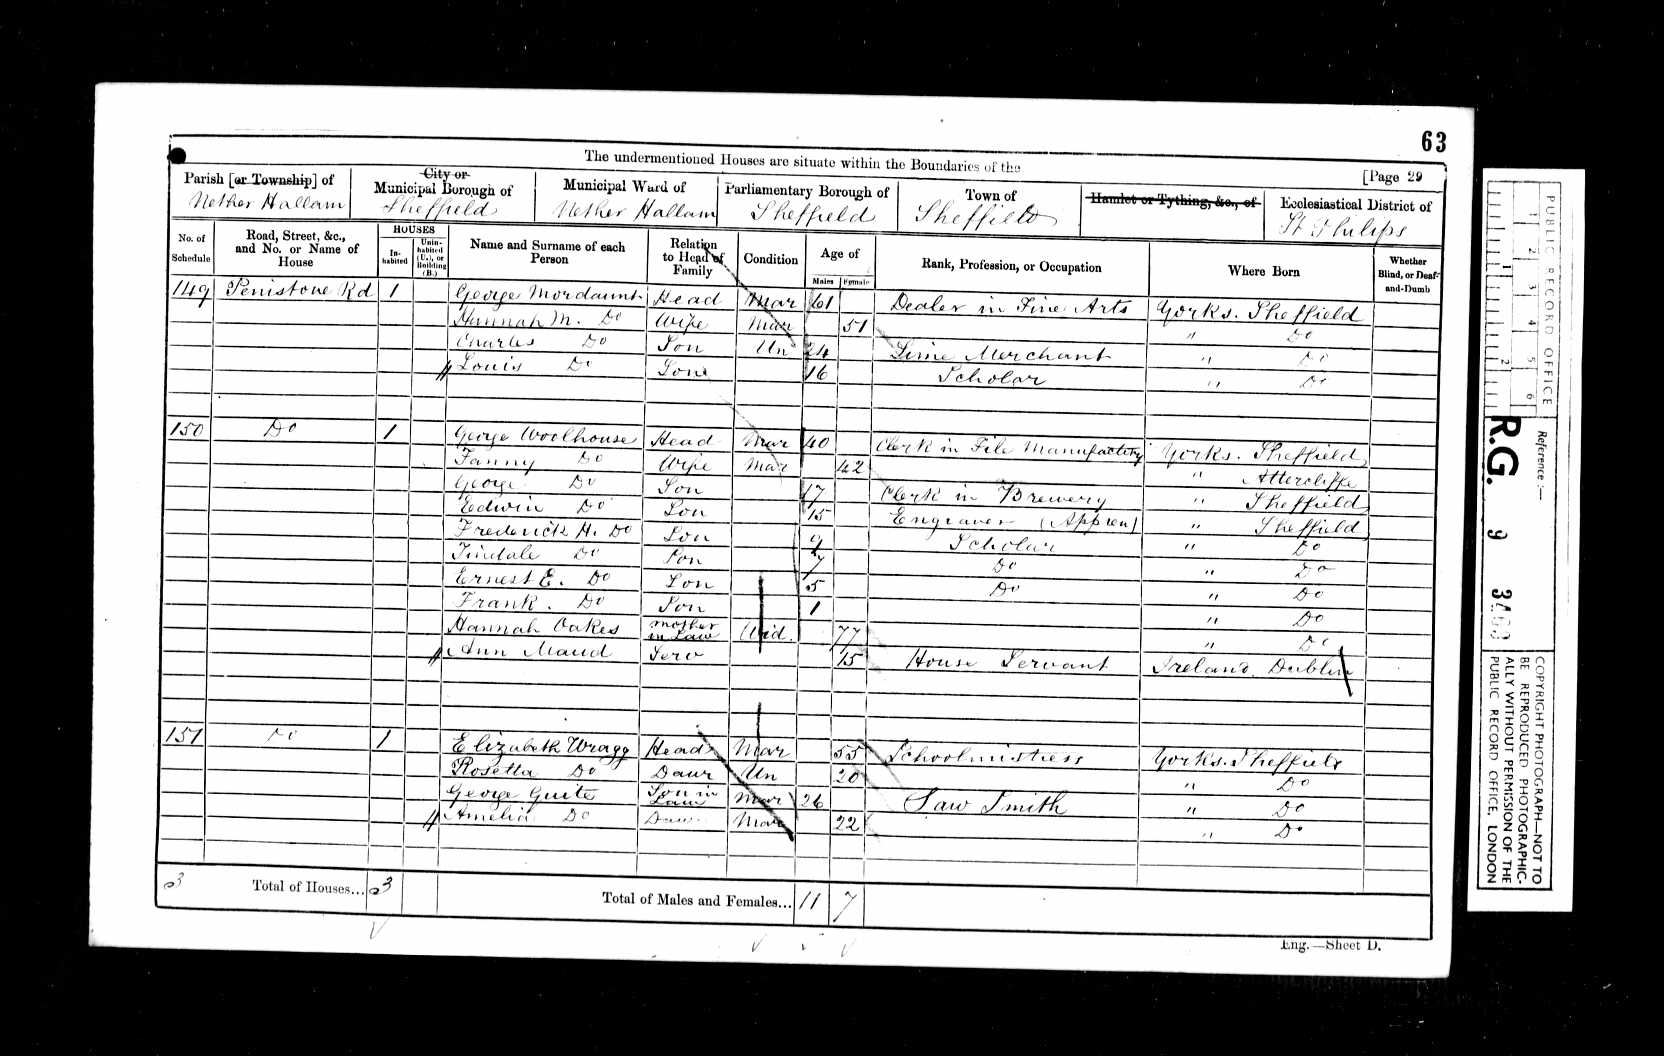 63
The undermentioned Houses are situate within the Boundaries of the
[Page 29
Parish [or Township] of
Nether Hallam
City or
Municipal Borough of
Sheffield
Municipal Ward of
Nether Hallam
Parliamentary Borough of
Sheffield
Town of
Sheffield
Hamlet or Tything, &c., of
Ecclesiastical District of
St Philips
No. of Schedule
Road, Street, &c., and No. or Name of House
HOUSES
In-habited
Unin-habited (U.), or Building (B.)
Name and Surname of each Person
Relation to Head of Family
Condition
Age of
Males
Females
Rank, Profession, or Occupation
Where Born
Whether Blind, or Deaf-and-Dumb
149 Penistone Rd 1 George Mordaunt Head Mar 61 Dealer in Fine Arts Yorks. Sheffield
Hannah M. Do Wife Mar 51 " Do
Charles Do Son Un 24 Lime Merchant " Do
Louis Do Son 16 Scholar " Do
150 Do 1 George Woolhouse Head Mar 40 Clerk in File Manufactory Yorks. Sheffield
Fanny Do Wife Mar 42 " Attercliffe
George Do Son 17 Clerk in Brewery " Sheffield
Edwin Do Son 15 Engraver (Appren) " Sheffield
Frederick H. Do Son 9 Scholar " Do
Tindale Do Son 7 Do " Do
Ernest E. Do Son 5 Do " Do
Frank. Do Son 1 " Do
Hannah Oakes Mother in Law Wid. 77 " Do
Ann Maud Serv 15 House Servant Ireland. Dublin
151 Do 1 Elizabeth Wragg Head Mar 55 Schoolmistress Yorks. Sheffield
Rosetta Do Daur Un 20 " Do
George Guite Son in Law Mar 26 Saw Smith " Do
Amelia Do Daur Mar 22 " Do
3 Total of Houses... 3 Total of Males and Females... 11 7
Eng.—Sheet D.
PUBLIC RECORD OFFICE
1 2 3 4 5 6
1 2
Reference :—
R.G. 9
COPYRIGHT PHOTOGRAPH—NOT TO
BE REPRODUCED PHOTOGRAPHIC-
ALLY WITHOUT PERMISSION OF THE
PUBLIC RECORD OFFICE, LONDON